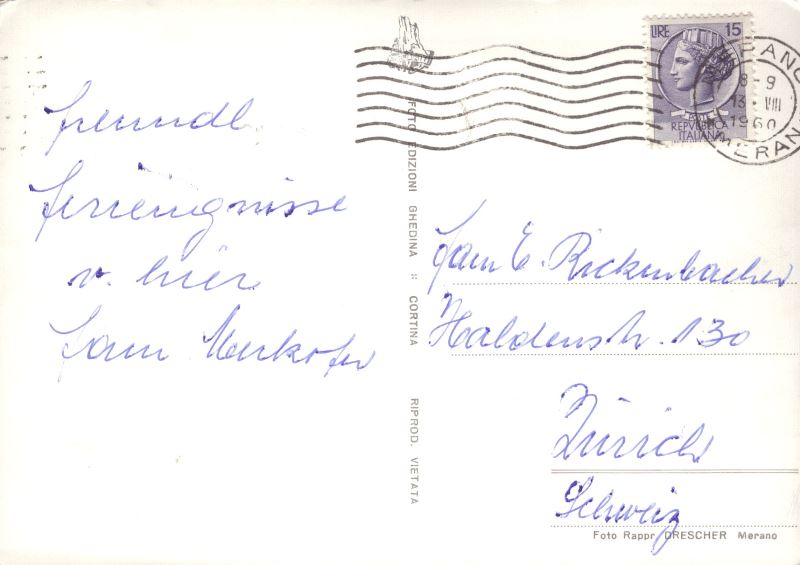 freundl.
Feriengrüsse
v. hier
Fam. Merkofer
FOTO EDIZIONI GHEDINA :: CORTINA RIPROD. VIETATA
LIRE 15
REPVBBLICA
ITALIANA
8-9
13 VIII
1960
MERANO
Fam E. Rickenbacher
Haldenstr. 130
Zürich
Schweiz
Foto Rappr. DRESCHER Merano